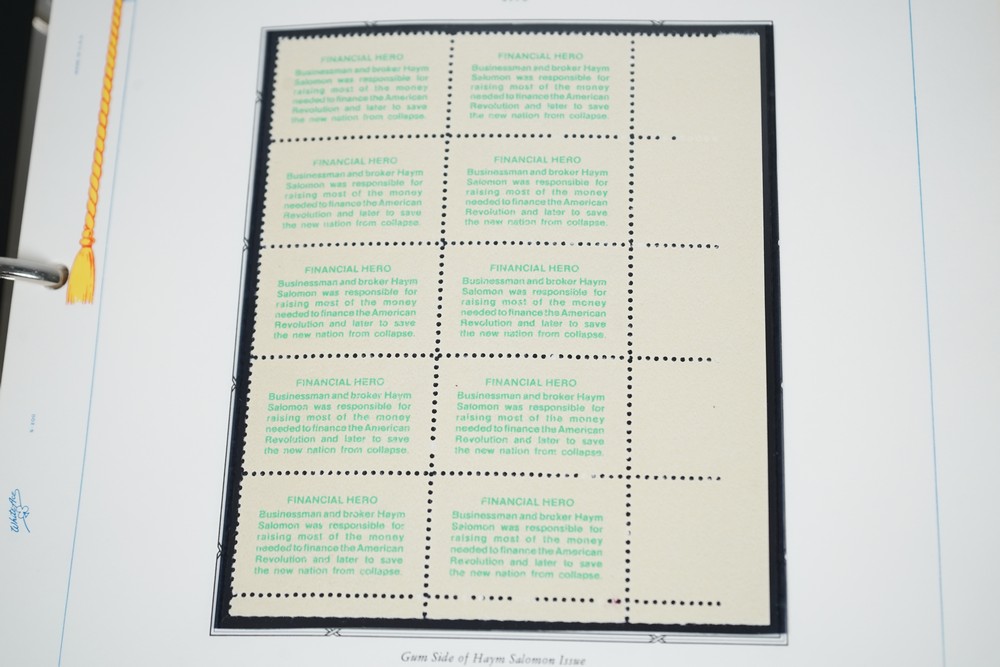 FINANCIAL HERO
Businessman and broker Haym
Salomon was responsible for
raising most of the money
needed to finance the American
Revolution and later to save
the new nation from collapse.
FINANCIAL HERO
Businessman and broker Haym
Salomon was responsible for
raising most of the money
needed to finance the American
Revolution and later to save
the new nation from collapse.
FINANCIAL HERO
Businessman and broker Haym
Salomon was responsible for
raising most of the money
needed to finance the American
Revolution and later to save
the new nation from collapse.
FINANCIAL HERO
Businessman and broker Haym
Salomon was responsible for
raising most of the money
needed to finance the American
Revolution and later to save
the new nation from collapse.
FINANCIAL HERO
Businessman and broker Haym
Salomon was responsible for
raising most of the money
needed to finance the American
Revolution and later to save
the new nation from collapse.
FINANCIAL HERO
Businessman and broker Haym
Salomon was responsible for
raising most of the money
needed to finance the American
Revolution and later to save
the new nation from collapse.
FINANCIAL HERO
Businessman and broker Haym
Salomon was responsible for
raising most of the money
needed to finance the American
Revolution and later to save
the new nation from collapse.
FINANCIAL HERO
Businessman and broker Haym
Salomon was responsible for
raising most of the money
needed to finance the American
Revolution and later to save
the new nation from collapse.
FINANCIAL HERO
Businessman and broker Haym
Salomon was responsible for
raising most of the money
needed to finance the American
Revolution and later to save
the new nation from collapse.
FINANCIAL HERO
Businessman and broker Haym
Salomon was responsible for
raising most of the money
needed to finance the American
Revolution and later to save
the new nation from collapse.
Gum Side of Haym Salomon Issue